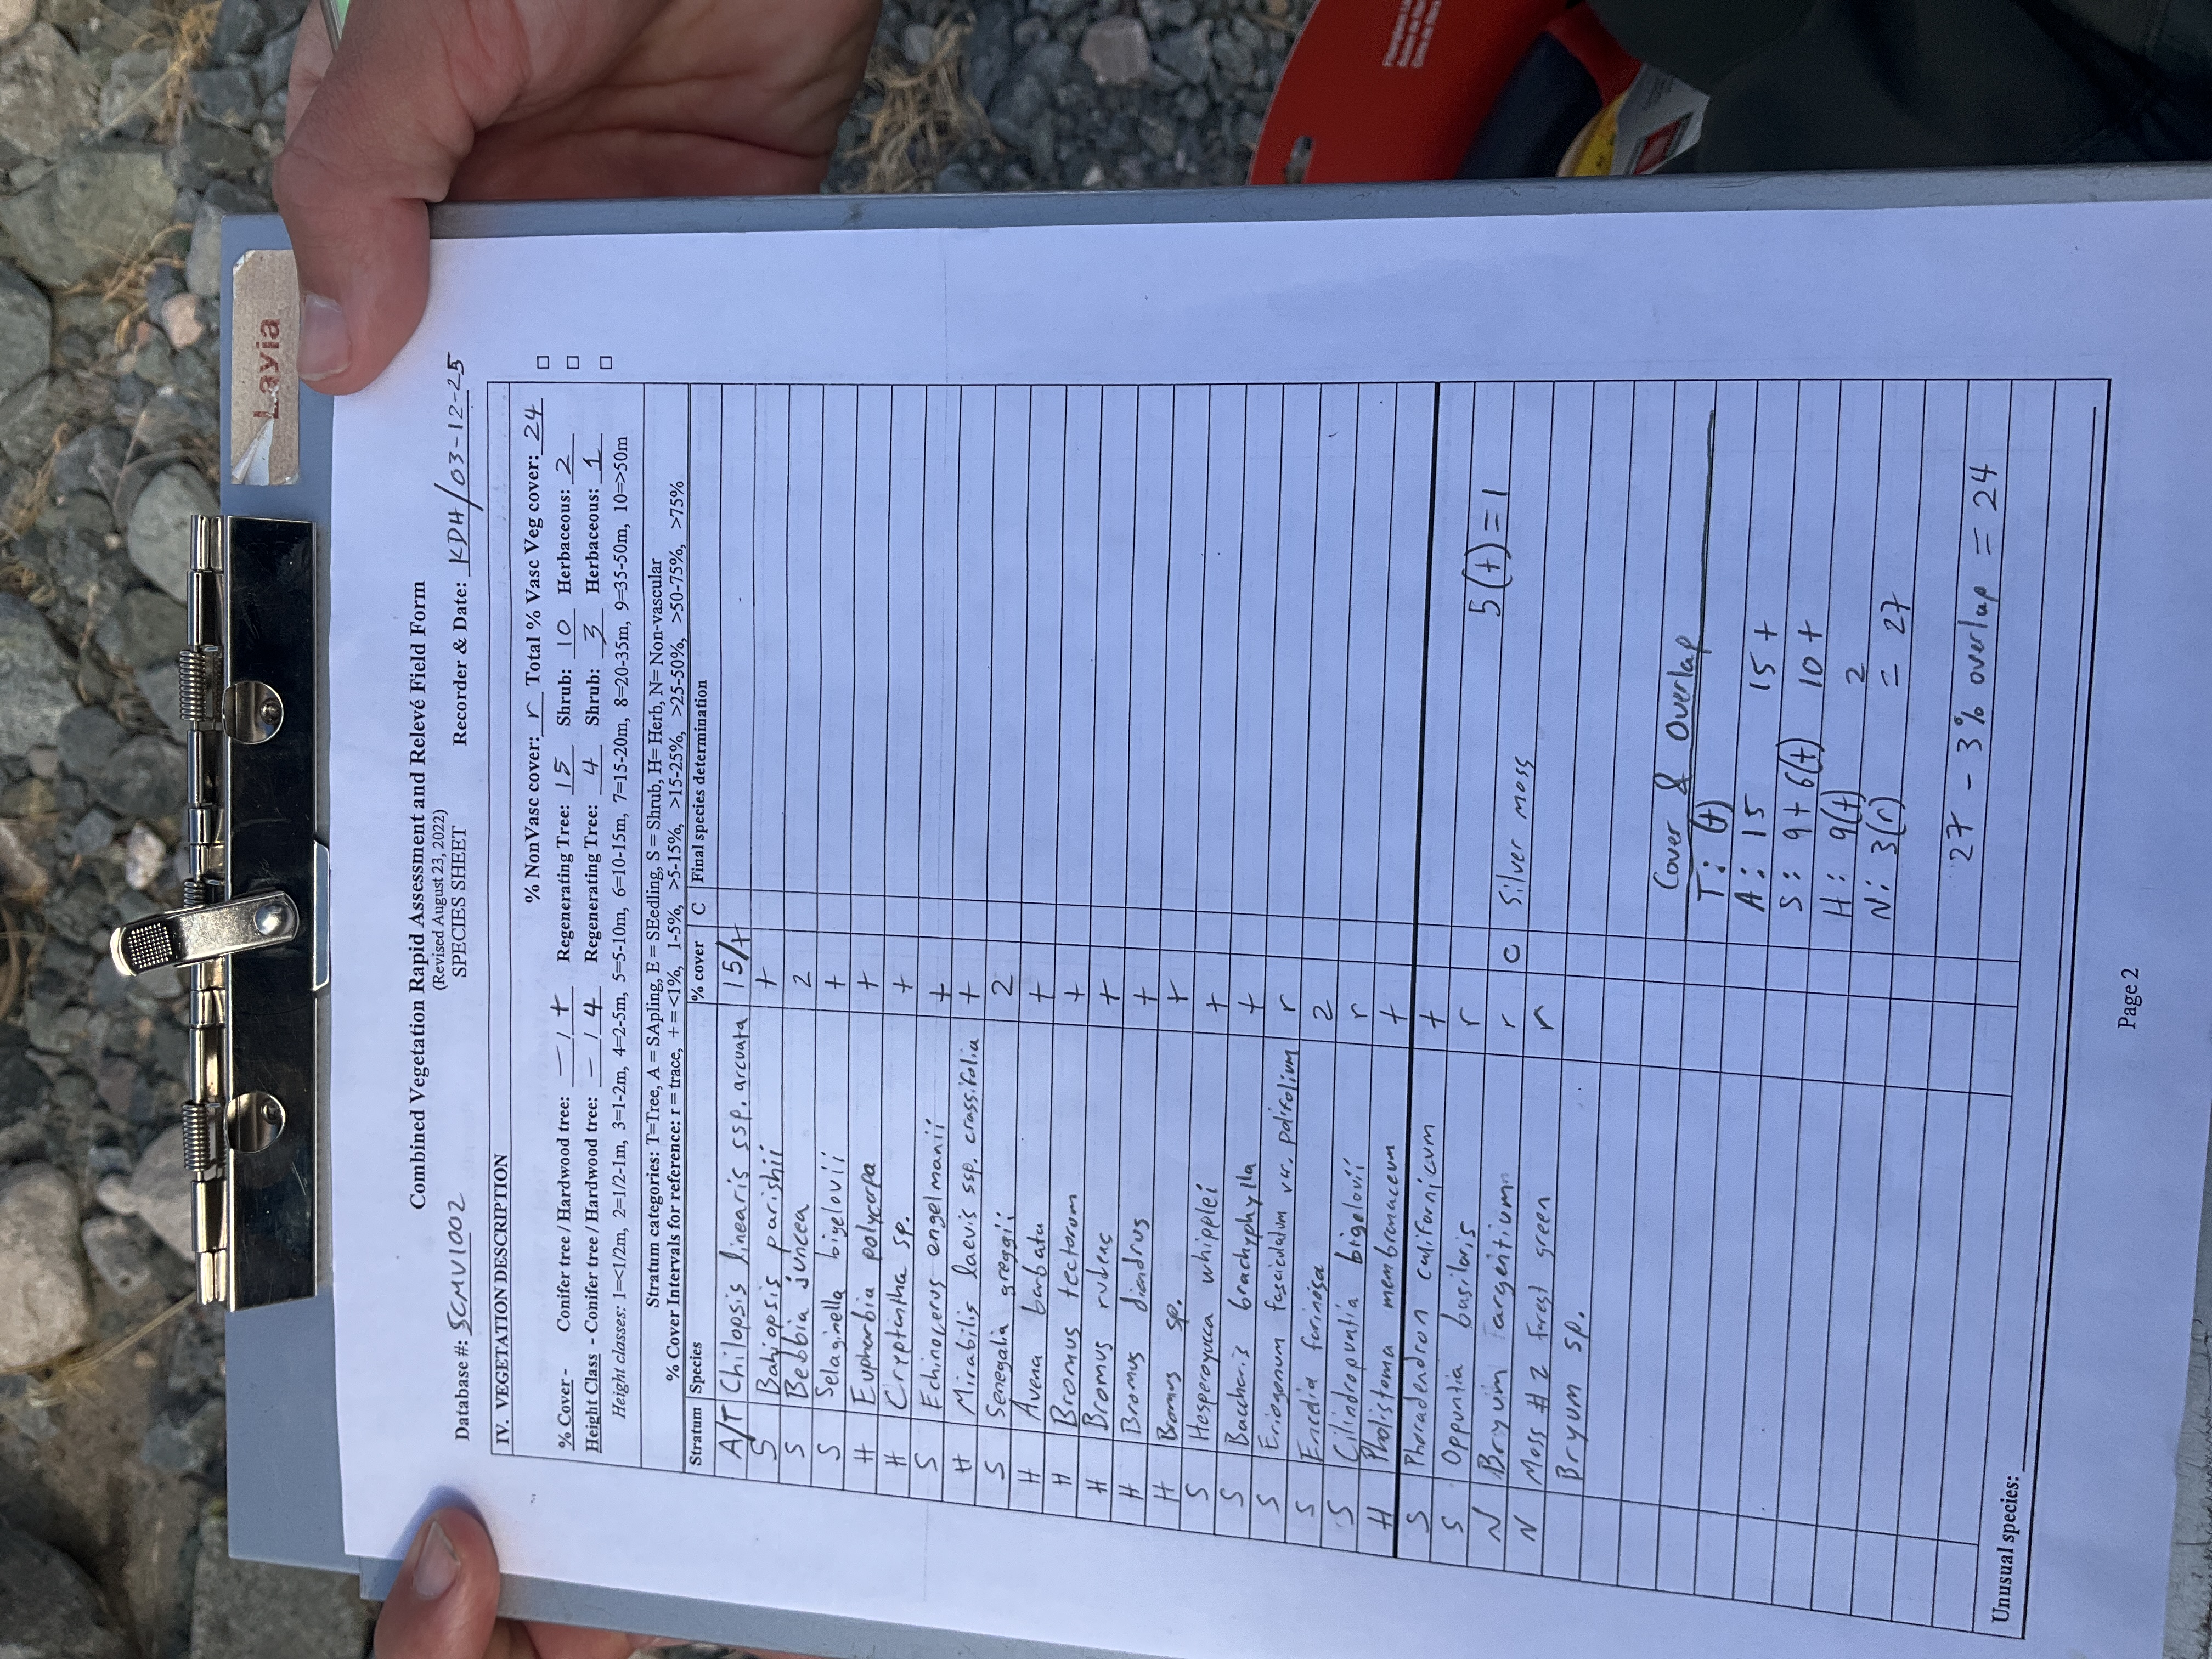 Layia
Combined Vegetation Rapid Assessment and Relevé Field Form
(Revised August 23, 2022)
Database #: SCMV1002 SPECIES SHEET Recorder & Date: KDH/03-12-25
IV. VEGETATION DESCRIPTION
% NonVasc cover: r Total % Vasc Veg cover: 24
% Cover - Conifer tree / Hardwood tree: — / + Regenerating Tree: 15 Shrub: 10 Herbaceous: 2
Height Class - Conifer tree / Hardwood tree: — / 4 Regenerating Tree: 4 Shrub: 3 Herbaceous: 1
Height classes: 1=<1/2m, 2=1/2-1m, 3=1-2m, 4=2-5m, 5=5-10m, 6=10-15m, 7=15-20m, 8=20-35m, 9=35-50m, 10=>50m
Stratum categories: T=Tree, A = SApling, E = SEedling, S = Shrub, H= Herb, N= Non-vascular
% Cover Intervals for reference: r = trace, + = <1%, 1-5%, >5-15%, >15-25%, >25-50%, >50-75%, >75%
Stratum Species % cover C Final species determination
A/T Chilopsis linearis ssp. arcuata 15/+
S Bahiopsis parishii +
S Bebbia juncea 2
S Selaginella bigelovii +
H Euphorbia polycarpa +
H Cryptantha sp. +
S Echinocerus engelmanii +
H Mirabilis laevis ssp. crassifolia +
S Senegalia greggii 2
H Avena barbata +
H Bromus tectorum +
H Bromus rubens +
H Bromus diandrus +
H Bromus sp. +
S Hesperoyucca whipplei +
S Baccharis brachyphylla +
S Eriogonum fasciculatum var. polifolium r
S Encelia farinosa 2
S Cilindropuntia bigelovii r
H Pholistoma membranaceum +
S Phoradendron californicum +
S Oppuntia basilaris r 5(+)=1
N Bryum argentium r C Silver moss
N Moss #2 forest green r
Bryum sp.
Cover & Overlap
T: (+)
A: 15 15 +
S: 9 + 6(+) 10 +
H: 9(+) 2
N: 3(r) = 27
27 - 3% overlap = 24
Unusual species:
Page 2